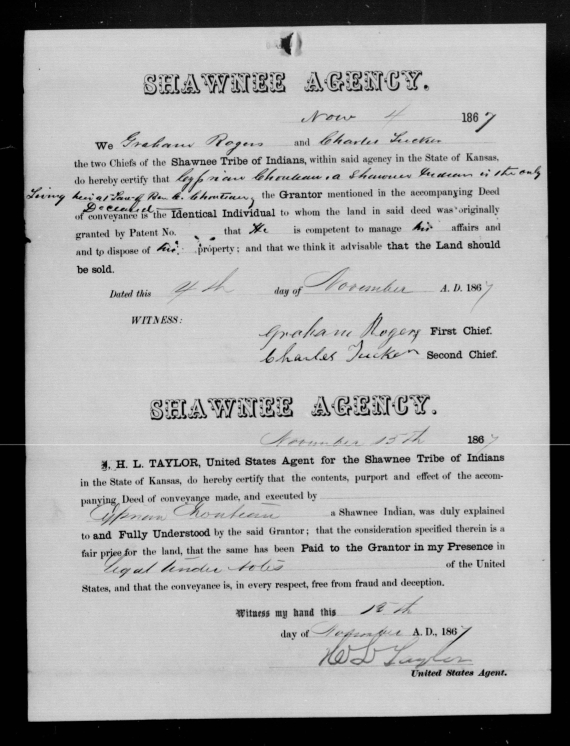 SHAWNEE AGENCY.
Nov 4 1867
We Graham Rogers and Charles Tucker
the two Chiefs of the Shawnee Tribe of Indians, within said agency in the State of Kansas,
do hereby certify that Cyprian Chouteau a Shawnee Indian is the only
Living heir at Law of Chouteau, the Grantor mentioned in the accompanying Deed
Deceased
of conveyance is the Identical Individual to whom the land in said deed was originally
granted by Patent No. " " that He is competent to manage his affairs and
and to dispose of his property; and that we think it advisable that the Land should
be sold.
Dated this 4th day of November A. D. 1867
WITNESS:
Graham Rogers First Chief.
Charles Tucker Second Chief.
SHAWNEE AGENCY.
November 15th 1867
I, H. L. TAYLOR, United States Agent for the Shawnee Tribe of Indians
in the State of Kansas, do hereby certify that the contents, purport and effect of the accom-
panying Deed of conveyance made, and executed by
Cyprian Chouteau a Shawnee Indian, was duly explained
to and Fully Understood by the said Grantor; that the consideration specified therein is a
fair price for the land, that the same has been Paid to the Grantor in my Presence in
legal tender notes of the United
States, and that the conveyance is, in every respect, free from fraud and deception.
Witness my hand this 15th
day of November A. D., 1867
H L Taylor
United States Agent.